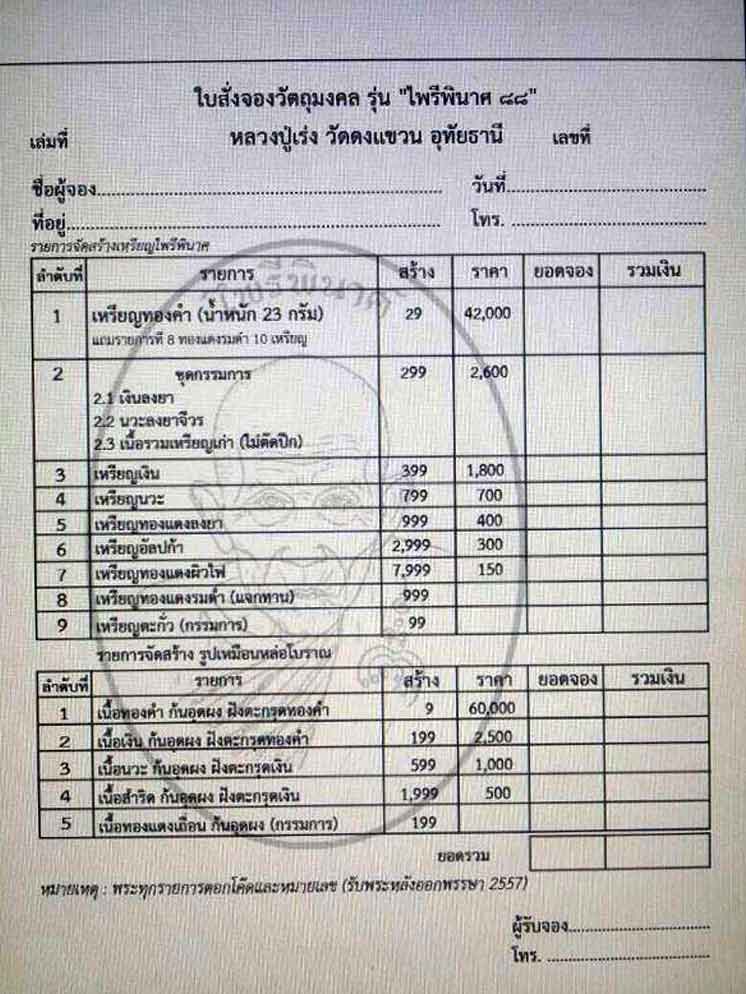 ใบสั่งจองวัตถุมงคล รุ่น "ไพรีพินาศ ๘๘"
เล่มที่ หลวงปู่เร่ง วัดดงแขวน อุทัยธานี เลขที่
ชื่อผู้จอง.......................................................... วันที่..................................
ที่อยู่.................................................................. โทร. ..................................
รายการจัดสร้างเหรียญไพรีพินาศ
ลำดับที่ รายการ สร้าง ราคา ยอดจอง รวมเงิน
1 เหรียญทองคำ (น้ำหนัก 23 กรัม) 29 42,000
แถมรายการที่ 8 ทองแดงรมดำ 10 เหรียญ
2 ชุดกรรมการ 299 2,600
2.1 เงินลงยา
2.2 นวะลงยาจีวร
2.3 เนื้อรวมเหรียญเก่า (ไม่ตัดปีก)
3 เหรียญเงิน 399 1,800
4 เหรียญนวะ 799 700
5 เหรียญทองแดงลงยา 999 400
6 เหรียญอัลปก้า 2,999 300
7 เหรียญทองแดงผิวไฟ 7,999 150
8 เหรียญทองแดงรมดำ (แจกทาน) 999
9 เหรียญตะกั่ว (กรรมการ) 99
รายการจัดสร้าง รูปเหมือนหล่อโบราณ
ลำดับที่ รายการ สร้าง ราคา ยอดจอง รวมเงิน
1 เนื้อทองคำ ก้นอุดผง ฝังตะกรุดทองคำ 9 60,000
2 เนื้อเงิน ก้นอุดผง ฝังตะกรุดทองคำ 199 2,500
3 เนื้อนวะ ก้นอุดผง ฝังตะกรุดเงิน 599 1,000
4 เนื้อสำริด ก้นอุดผง ฝังตะกรุดเงิน 1,999 500
5 เนื้อทองแดงเถื่อน ก้นอุดผง (กรรมการ) 199
ยอดรวม
หมายเหตุ : พระทุกรายการตอกโค๊ดและหมายเลข (รับพระหลังออกพรรษา 2557)
ผู้รับจอง..........................
โทร. ..............................
ไพรีพินาศ